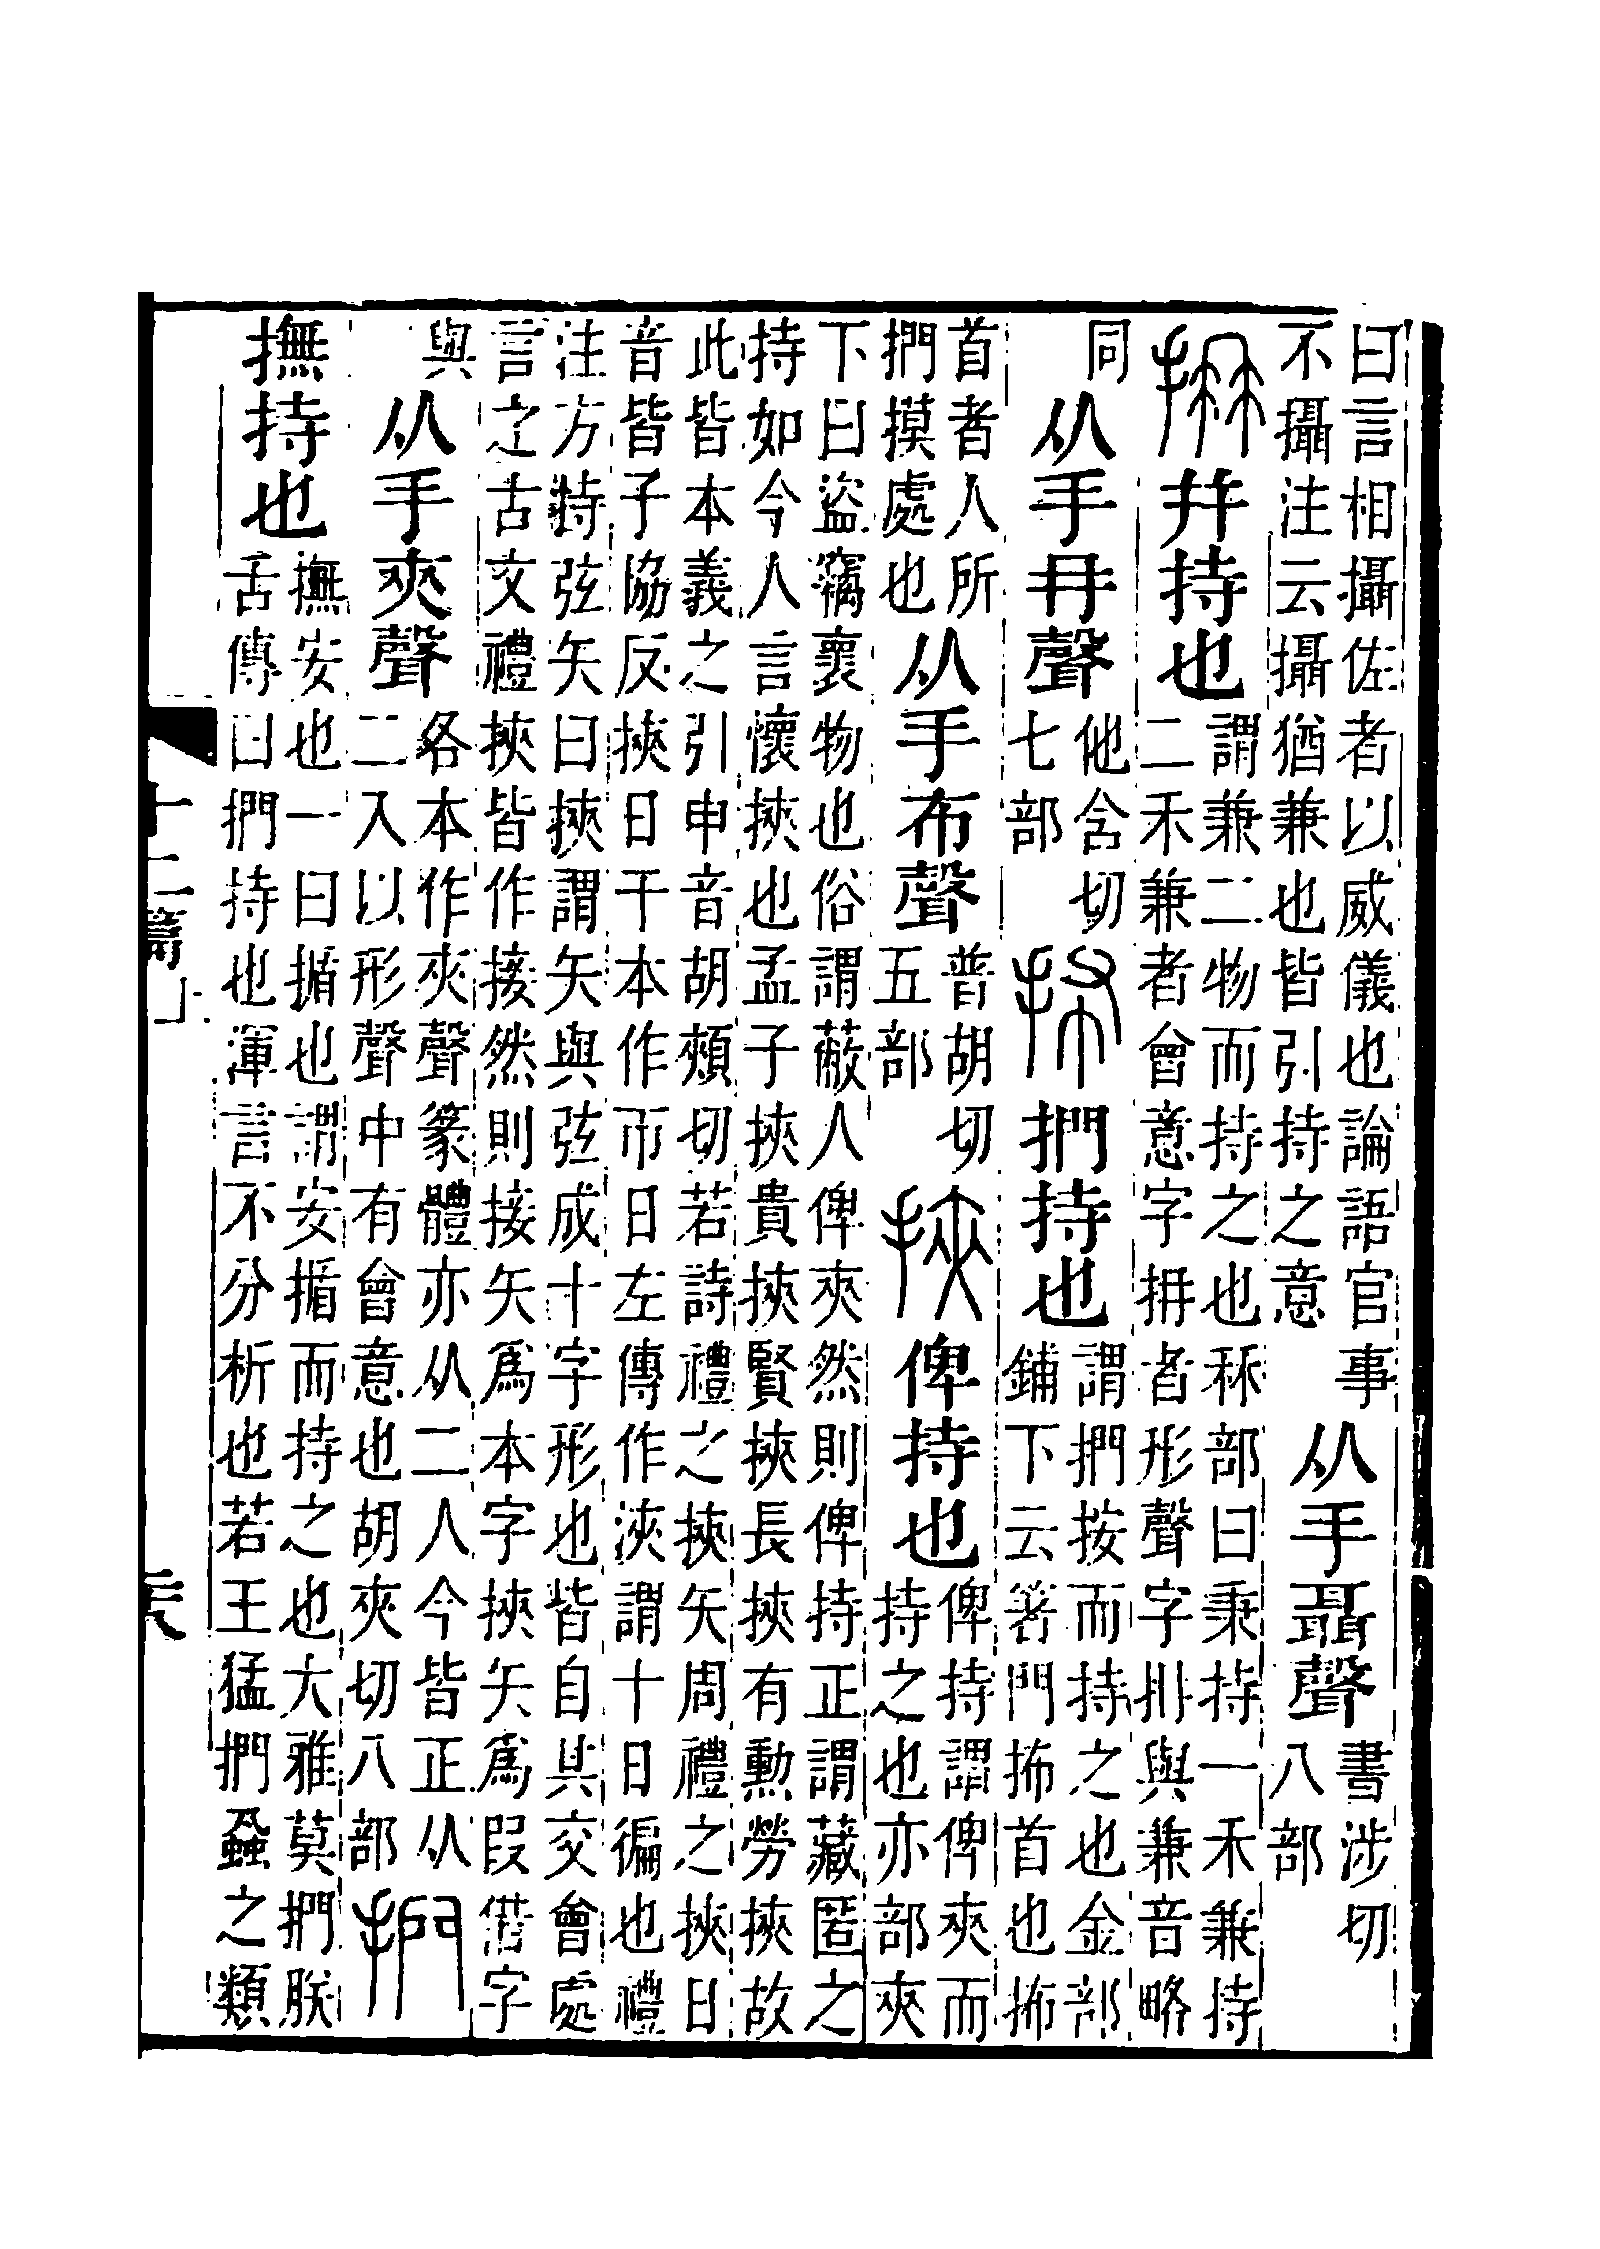 曰言相攝佐者以威儀也論語官事
不攝注云攝猶兼也皆引持之意
从手聶聲
書涉切
八部
抩
幷持也
謂兼二物而持之也秝部曰秉持一禾兼持
二禾兼者會意字抩者形聲字抩與兼音略
同
从手冄聲
他含切
七部
抪
捫持也
謂捫按而持之也金部
鋪下云箸門抪首也抪
首者人所
捫摸處也
从手布聲
普胡切
五部
挾
俾持也
俾持謂俾夾而
持之也亦部夾
下曰盜竊褱物也俗謂蔽人俾夾然則俾持正謂藏匿之
持如今人言懷挾也孟子挾貴挾賢挾長挾有勳勞挾故
此皆本義之引申音胡頰切若詩禮之挾矢周禮之挾日
音皆子協反挾日干本作帀日左傳作浹謂十日徧也禮
注方持弦矢曰挾謂矢與弦成十字形也皆自其交會處
言之古文禮挾皆作接然則接矢爲本字挾矢爲叚借字
與
从手夾聲
各本作夾聲篆體亦从二人今皆正从
二入以形聲中有會意也胡夾切八部
捫
撫持也
撫安也一曰揗也謂安揗而持之也大雅莫捫朕
舌傳曰捫持也渾言不分析也若王猛捫蝨之類
十二篇上